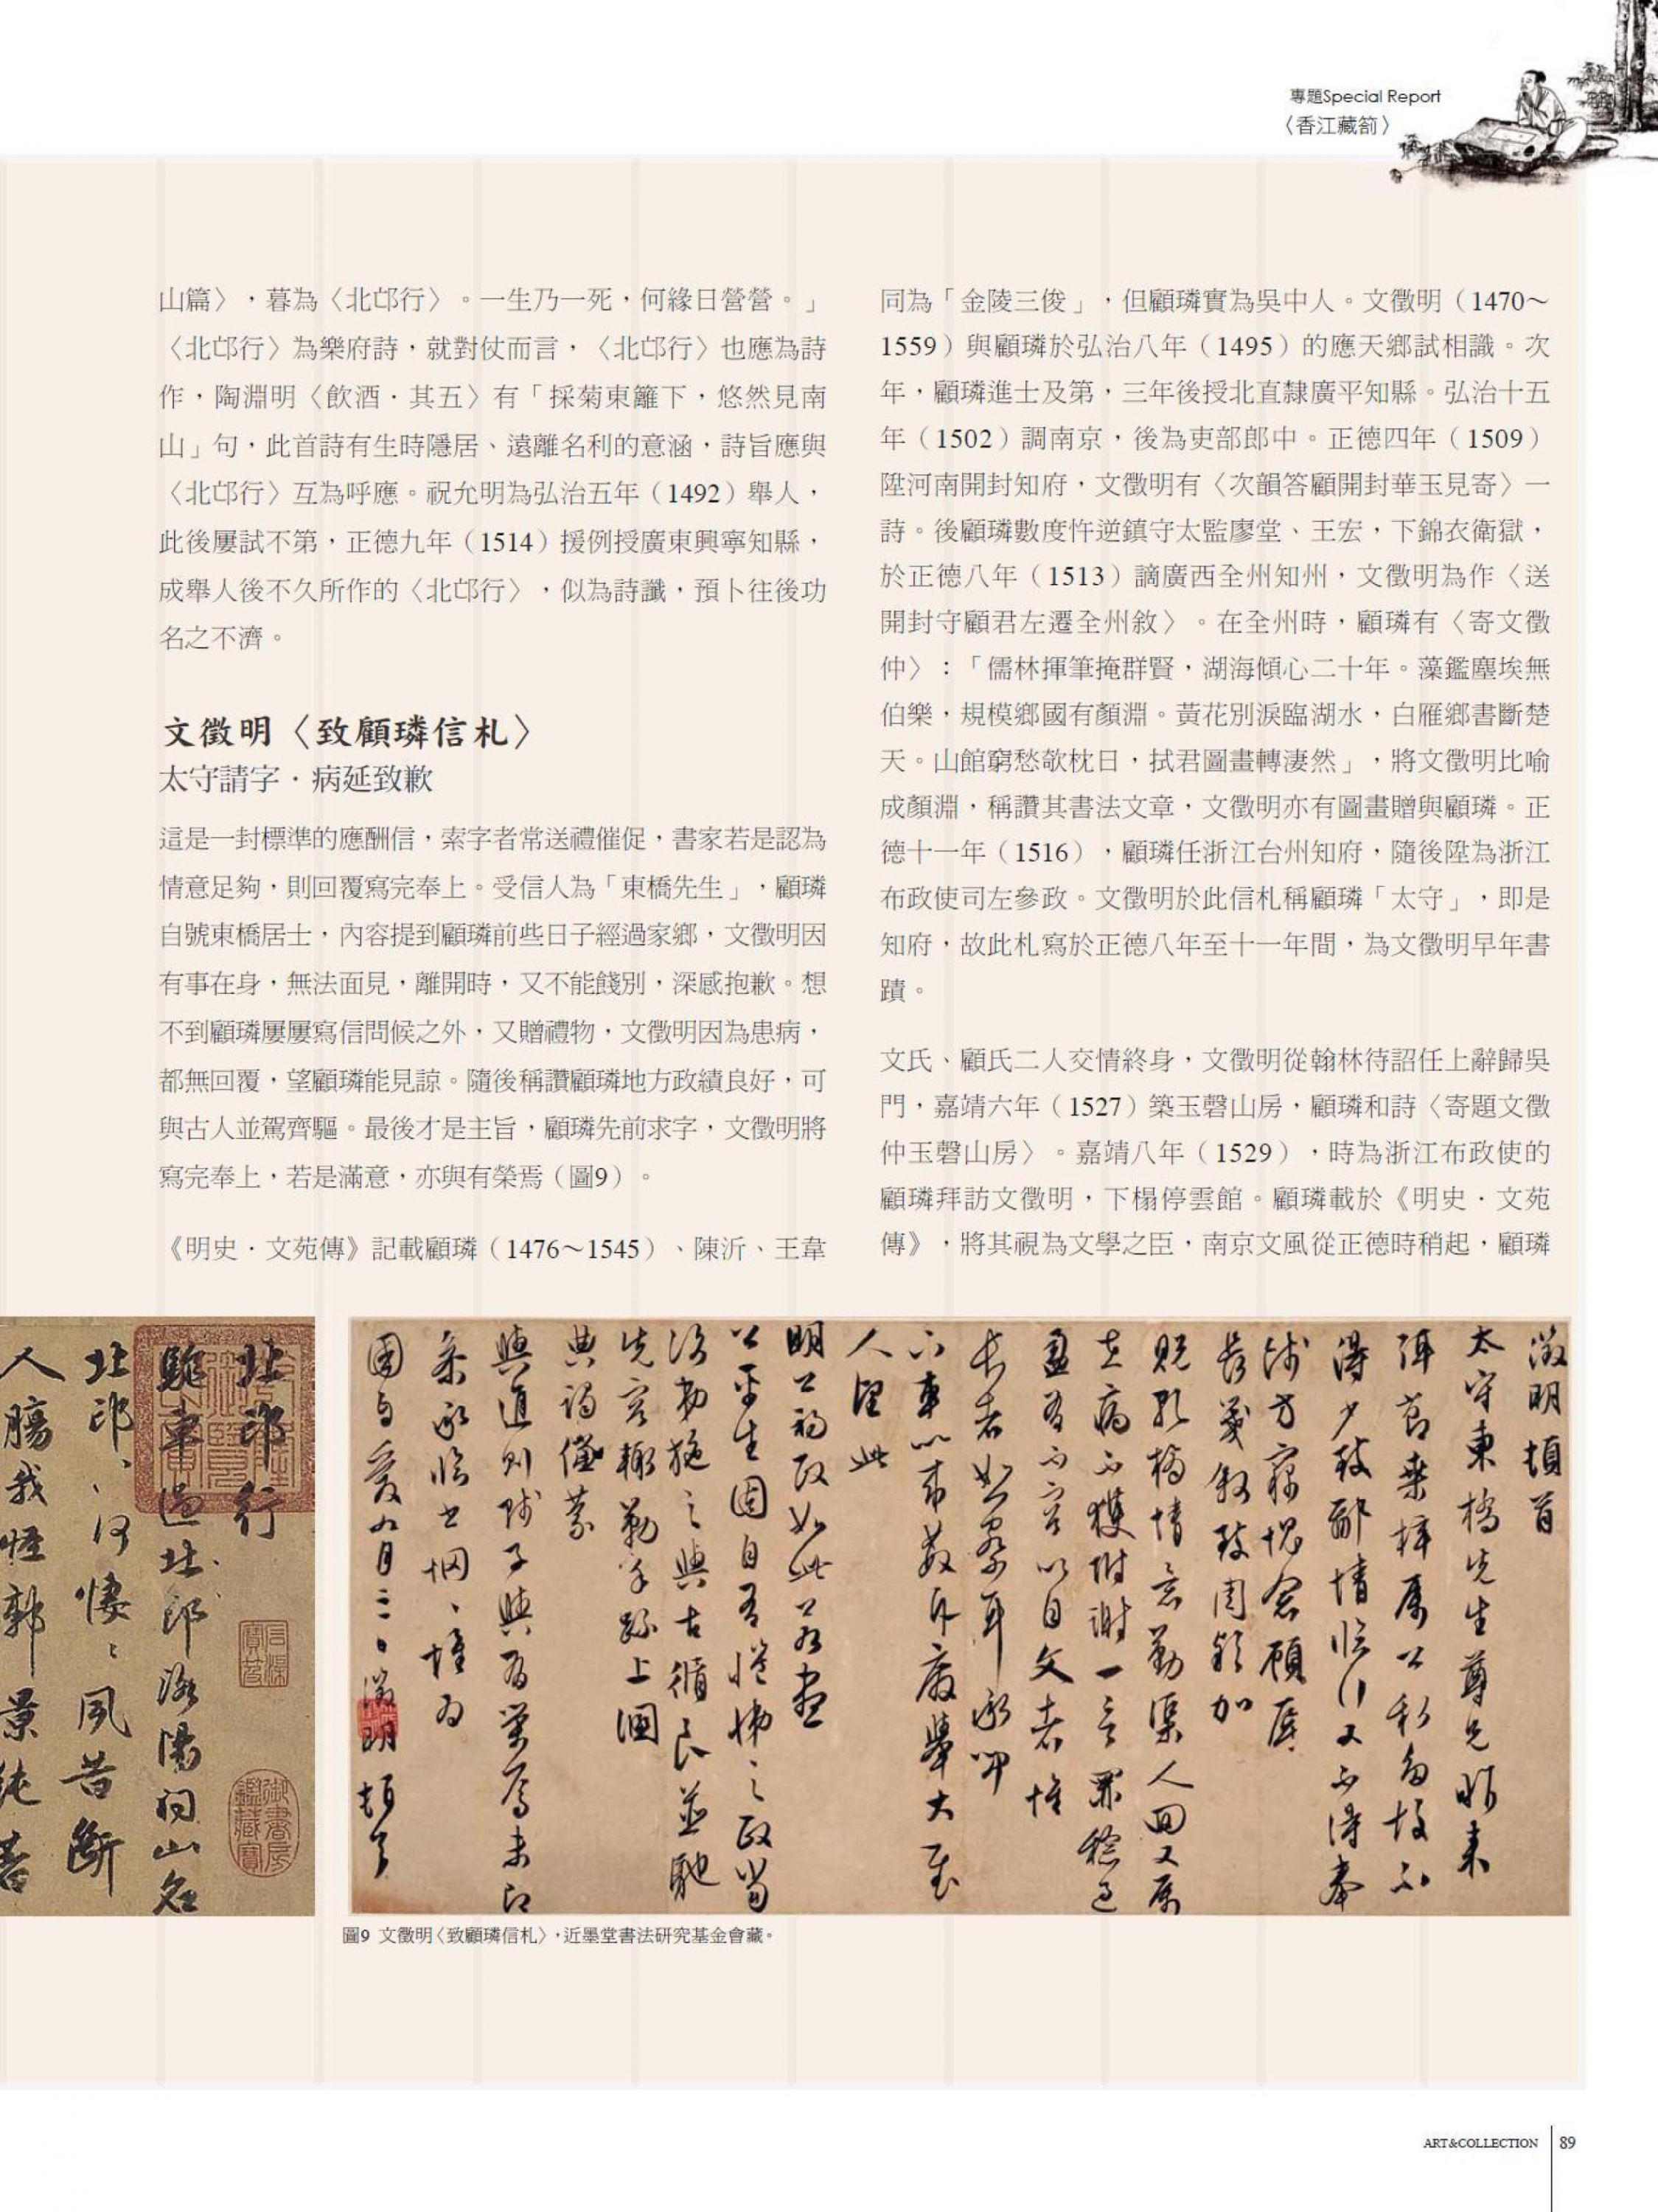 專題Special Report
〈香江藏箚〉
山篇〉，暮為〈北邙行〉。一生乃一死，何緣日營營。」
〈北邙行〉為樂府詩，就對仗而言，〈北邙行〉也應為詩
作，陶淵明〈飲酒．其五〉有「採菊東籬下，悠然見南
山」句，此首詩有生時隱居、遠離名利的意涵，詩旨應與
〈北邙行〉互為呼應。祝允明為弘治五年（1492）舉人，
此後屢試不第，正德九年（1514）援例授廣東興寧知縣，
成舉人後不久所作的〈北邙行〉，似為詩讖，預卜往後功
名之不濟。
文徵明〈致顧璘信札〉
太守請字．病延致歉
這是一封標準的應酬信，索字者常送禮催促，書家若是認為
情意足夠，則回覆寫完奉上。受信人為「東橋先生」，顧璘
自號東橋居士，內容提到顧璘前些日子經過家鄉，文徵明因
有事在身，無法面見，離開時，又不能餞別，深感抱歉。想
不到顧璘屢屢寫信問候之外，又贈禮物，文徵明因為患病，
都無回覆，望顧璘能見諒。隨後稱讚顧璘地方政績良好，可
與古人並駕齊驅。最後才是主旨，顧璘先前求字，文徵明將
寫完奉上，若是滿意，亦與有榮焉（圖9）。
《明史．文苑傳》記載顧璘（1476～1545）、陳沂、王韋
同為「金陵三俊」，但顧璘實為吳中人。文徵明（1470～
1559）與顧璘於弘治八年（1495）的應天鄉試相識。次
年，顧璘進士及第，三年後授北直隸廣平知縣。弘治十五
年（1502）調南京，後為吏部郎中。正德四年（1509）
陞河南開封知府，文徵明有〈次韻答顧開封華玉見寄〉一
詩。後顧璘數度忤逆鎮守太監廖堂、王宏，下錦衣衛獄，
於正德八年（1513）謫廣西全州知州，文徵明為作〈送
開封守顧君左遷全州敘〉。在全州時，顧璘有〈寄文徵
仲〉：「儒林揮筆掩群賢，湖海傾心二十年。藻鑑塵埃無
伯樂，規模鄉國有顏淵。黃花別淚臨湖水，白雁鄉書斷楚
天。山館窮愁欹枕日，拭君圖畫轉淒然」，將文徵明比喻
成顏淵，稱讚其書法文章，文徵明亦有圖畫贈與顧璘。正
德十一年（1516），顧璘任浙江台州知府，隨後陞為浙江
布政使司左參政。文徵明於此信札稱顧璘「太守」，即是
知府，故此札寫於正德八年至十一年間，為文徵明早年書
蹟。
文氏、顧氏二人交情終身，文徵明從翰林待詔任上辭歸吳
門，嘉靖六年（1527）築玉磬山房，顧璘和詩〈寄題文徵
仲玉磬山房〉。嘉靖八年（1529），時為浙江布政使的
顧璘拜訪文徵明，下榻停雲館。顧璘載於《明史．文苑
傳》，將其視為文學之臣，南京文風從正德時稍起，顧璘
北邙行
驅車過北邙洛陽祠山名
北邙、何悽、風昔斷
人腸我怪郭景純著
徵明頓首
太守東橋先生尊兄
圖9 文徵明〈致顧璘信札〉，近墨堂書法研究基金會藏。
ART&COLLECTION
89